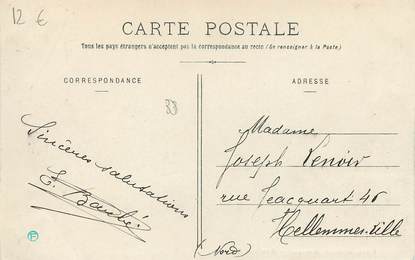 12 €
CARTE POSTALE
Tous les pays étrangers n'acceptent pas la correspondance au recto (Se renseigner à la Poste)
CORRESPONDANCE
ADRESSE
33
Sincères salutations
E.
Madame
Joseph Lenoir
rue Jacquart 46
Hellemmes-Lille
(Nord)